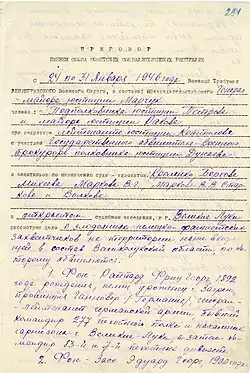 ПРИГОВОР
ИМЕНЕМ СОЮЗА СОВЕТСКИХ СОЦИАЛИСТИЧЕСКИХ РЕСПУБЛИК
С 24 по 31 Января 1946 года Военный Трибунал
ЛЕНИНГРАДСКОГО Военного Округа, в составе: председательствующего Генерал
майора юстиции Марчук
членов: Подполковника юстиции Петрова
и майора юстиции
при секретаре лейтенанте юстиции
с участием Государственного обвинителя Военного
прокурора полковника юстиции
и защитников по назначению суда - адвокатов: Кролико
Маркова
и Волкова
в открытом судебном заседании, в г. Великие Луки
рассмотрел дело О злодеяниях немецко-фашистских
захватчиков на территории ныне входя
щей в состав Великолукской области, по ко
торому обвиняются:
1. Фон Раппард Фриц Георг 1892
года рождения, немец, уроженец г.
провинция Ганновер /Германия/, генерал-
лейтенант германской армии, бывший
командир 277 пехотного полка и начальник
гарнизона г. Великие Луки, а затем ко-
мандир пехотной дивизии.
2. Фон-Засс Эдуард Георг 1900 года